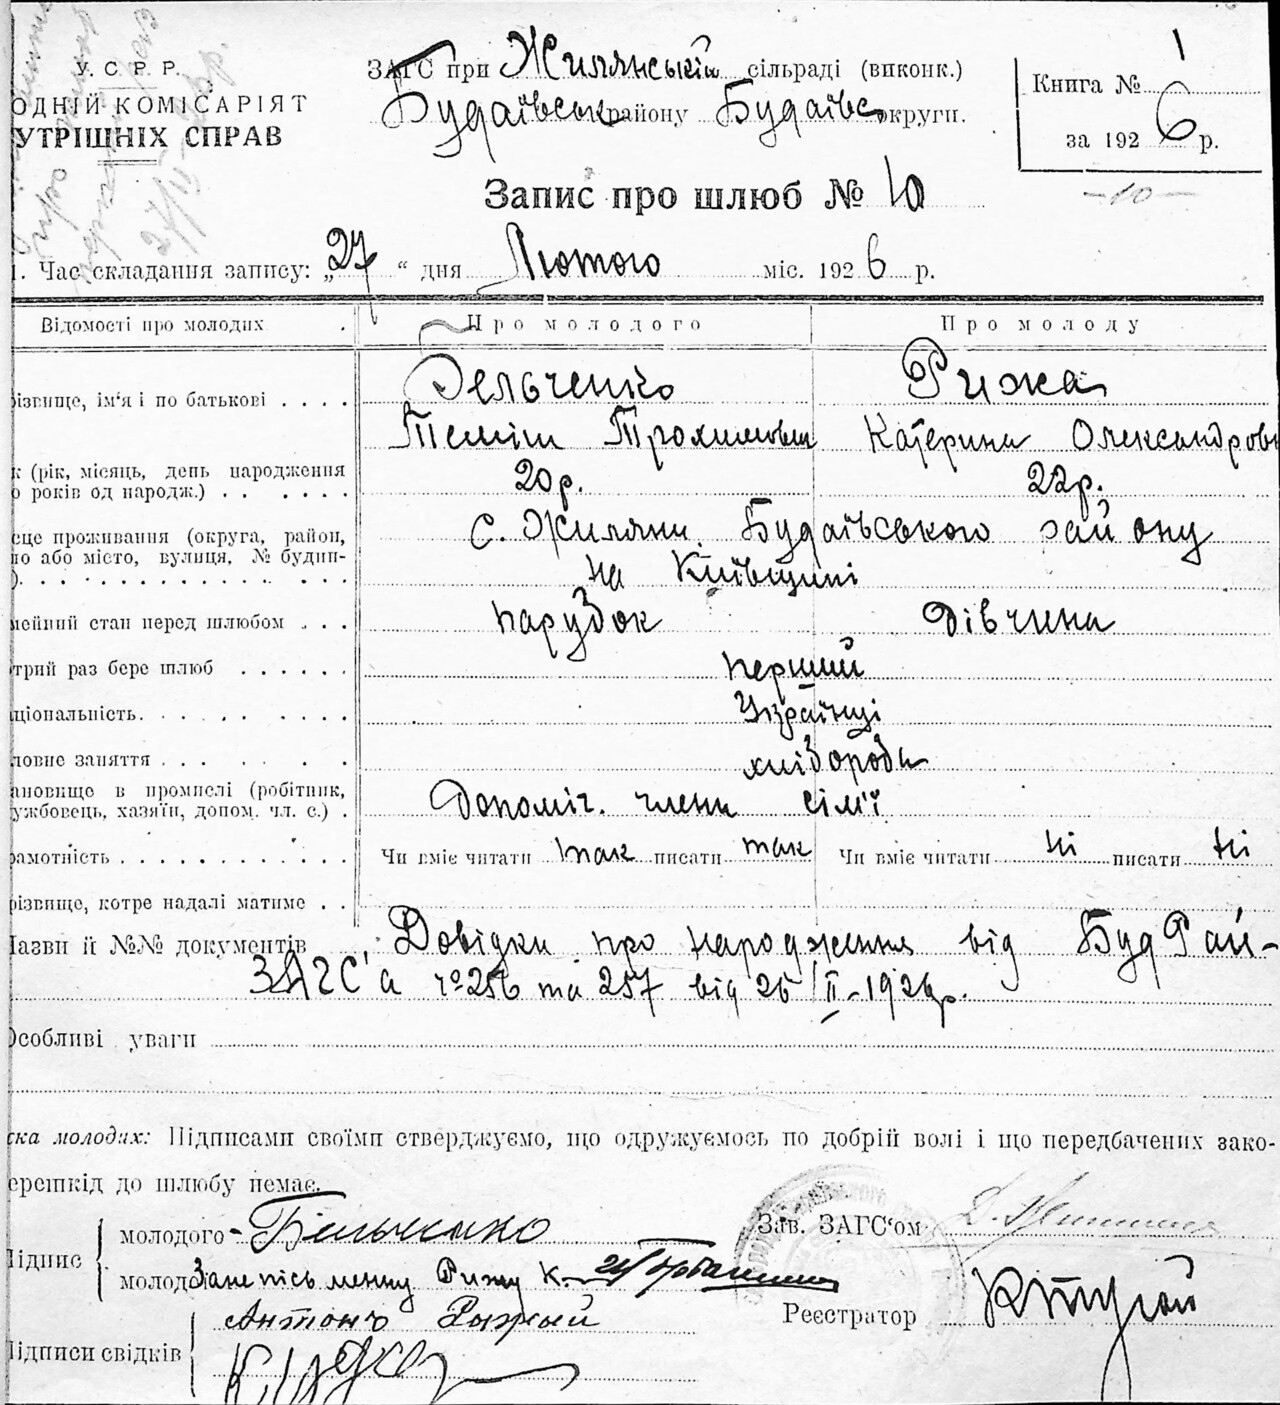 У. С. Р. Р.
ОДНІЙ КОМІСАРІЯТ
УТРІШНІХ СПРАВ
ЗАГС при Жилянській сільраді (виконк.)
Будаївськ району Будаївс округи.
Книга № 1
за 1926 р.
Запис про шлюб № 10
— 10 —
1. Час складання запису: „27“ дня Лютого міс. 1926 р.
Відомості про молодих Про молодого Про молоду
різвище, ім'я і по батькові . . . . Бельченко Рижа
Трохимович Катерина Олександровн
к (рік, місяць, день народження
о років од народж.) . . . . . . 20 р. 22 р.
сце проживання (округа, район,
ло або місто, вулиця, № будин-
). . . . с. Жиляни Будаївського району
на Київщині
мейний стан перед шлюбом . . . парубок Дівчина
трий раз бере шлюб . . . . . . перший
аціональність. . . . . . . . Українці
ловне заняття . . . . . . хлібороби
ановище в промислі (робітник,
ужбовець, хазяїн, допом. чл. с.) . Допоміч. члени сімї
рамотність . . . . . . . . . . . Чи вміє читати так писати так Чи вміє читати ні писати ні
різвище, котре надалі матиме . .
Назви й №№ документів Довідки про народження від БудРай-
ЗАГС'а № 256 та 257 від 25/II-1926р.
Особливі уваги
ска молодих: Підписами своїми стверджуємо, що одружуємось по добрій волі і що передбачених зако-
ерешкід до шлюбу немає.
Підпис
молодого - Бельченко
молодої За неписьменну Рижу К.
Підписи свідків
Антонъ Рыжый
Зав. ЗАГС'ом
Реєстратор